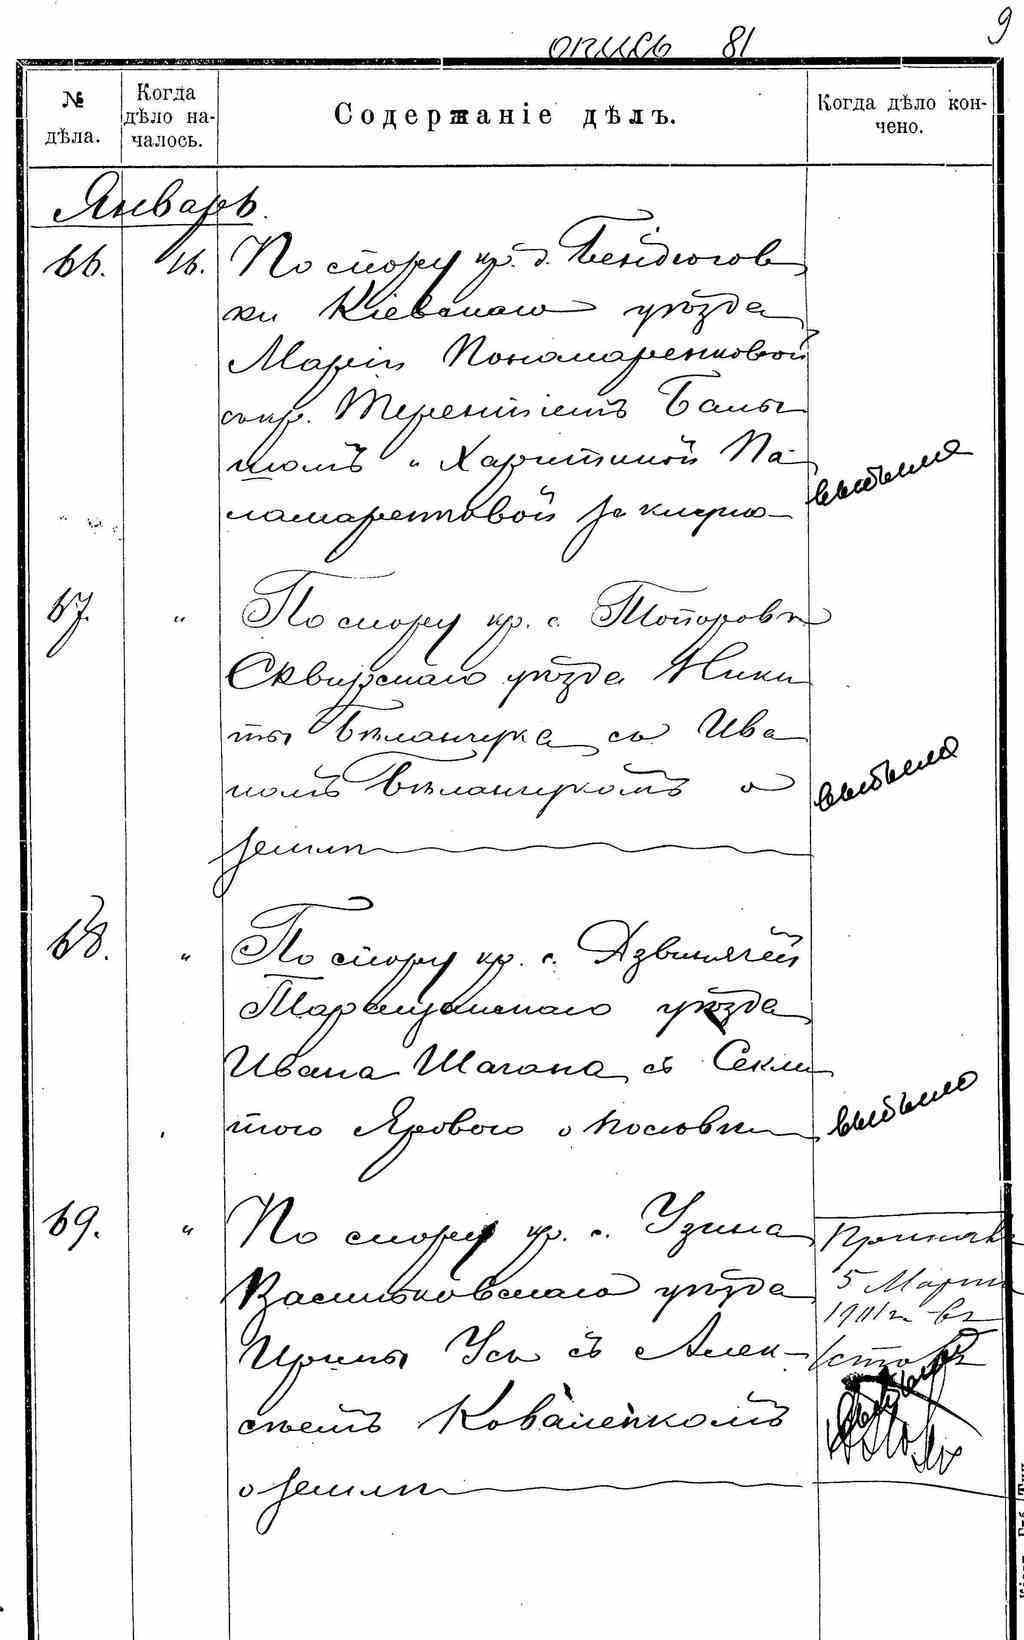 9
опись 81
№ дѣла.
Когда дѣло на-
чалось.
Содержаніе дѣлъ.
Когда дѣло кон-
чено.
Январь.
66. 16. По спору кр. д. Бендюгов
ки Кіевскаго уѣзда
Маріи Пономаренковой
съ кр. Терентіемъ Балы
шомъ и Харитиной Па-
ламаренковой за клуню
выбыло
67. " По спору кр. с. Топоровки
Сквирскаго уѣзда Ники
ты Бѣланчука съ Ива
номъ Бѣланчукомъ о
землѣ
выбыло
68. " По спору кр. с. Дзвинячей
Таращанскаго уѣзда
Ивана Шагана съ Секли
того Ярового о
выбыло
69. " По спору кр. с. Узина
Васильковскаго уѣзда
Ирины Усъ съ Алек-
сѣемъ Коваленкомъ
о землѣ
5 Марта
1911 г. въ